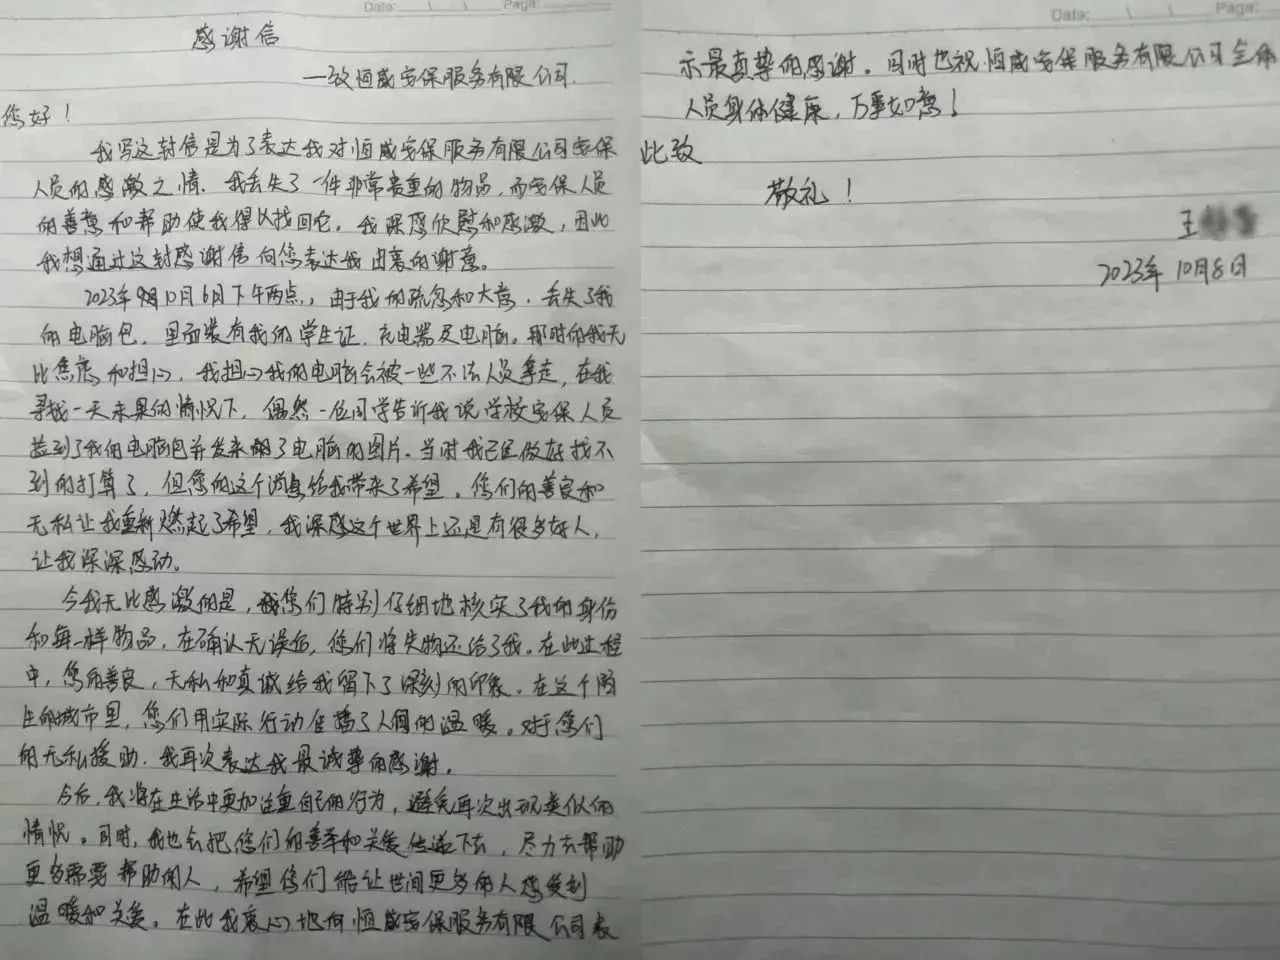 Date: \ \ Page:
感谢信
—致恒威安保服务有限公司.
您好！
我写这封信是为了表达我对恒威安保服务有限公司安保
人员的感激之情. 我丢失了一件非常贵重的物品, 而安保人员
的善意和帮助使我得以找回它。我深感欣慰和感激, 因此
我想通过这封感谢信向您表达我由衷的谢意。
2023年10月6日下午两点, 由于我的疏忽和大意, 丢失了我
的电脑包, 里面装有我的学生证, 充电器及电脑。那时的我无
比焦虑和担心, 我担心我的电脑会被一些不法人员拿走, 在我
寻找一天未果的情况下, 偶然一位同学告诉我说学校安保人员
捡到了我的电脑包并发来了电脑的图片. 当时我已经做好找不
到的打算了, 但您的这个消息给我带来了希望。您们的善良和
无私让我重新燃起了希望, 我深感这个世界上还是有很多好人,
让我深深感动。
令我无比感激的是, 您们特别仔细地核实了我的身份
和每一样物品, 在确认无误后, 您们将失物还给了我。在此过程
中, 您的善良, 无私和真诚给我留下了深刻的印象。在这个陌
生的城市里, 您们用实际行动传播了人间的温暖。对于您们
的无私援助, 我再次表达我最诚挚的感谢。
今后, 我将在生活中更加注重自己的行为, 避免再次出现类似的
情况。同时, 我也会把您们的善举和关爱传递下去, 尽力去帮助
更多需要帮助的人, 希望您们能让世间更多的人感受到
温暖和关爱。在此我衷心地向恒威安保服务有限公司表
Date: \ \ Page:
示最真挚的感谢。同时也祝恒威安保服务有限公司全体
人员身体健康, 万事如意！
此致
敬礼！
王
2023年10月8日